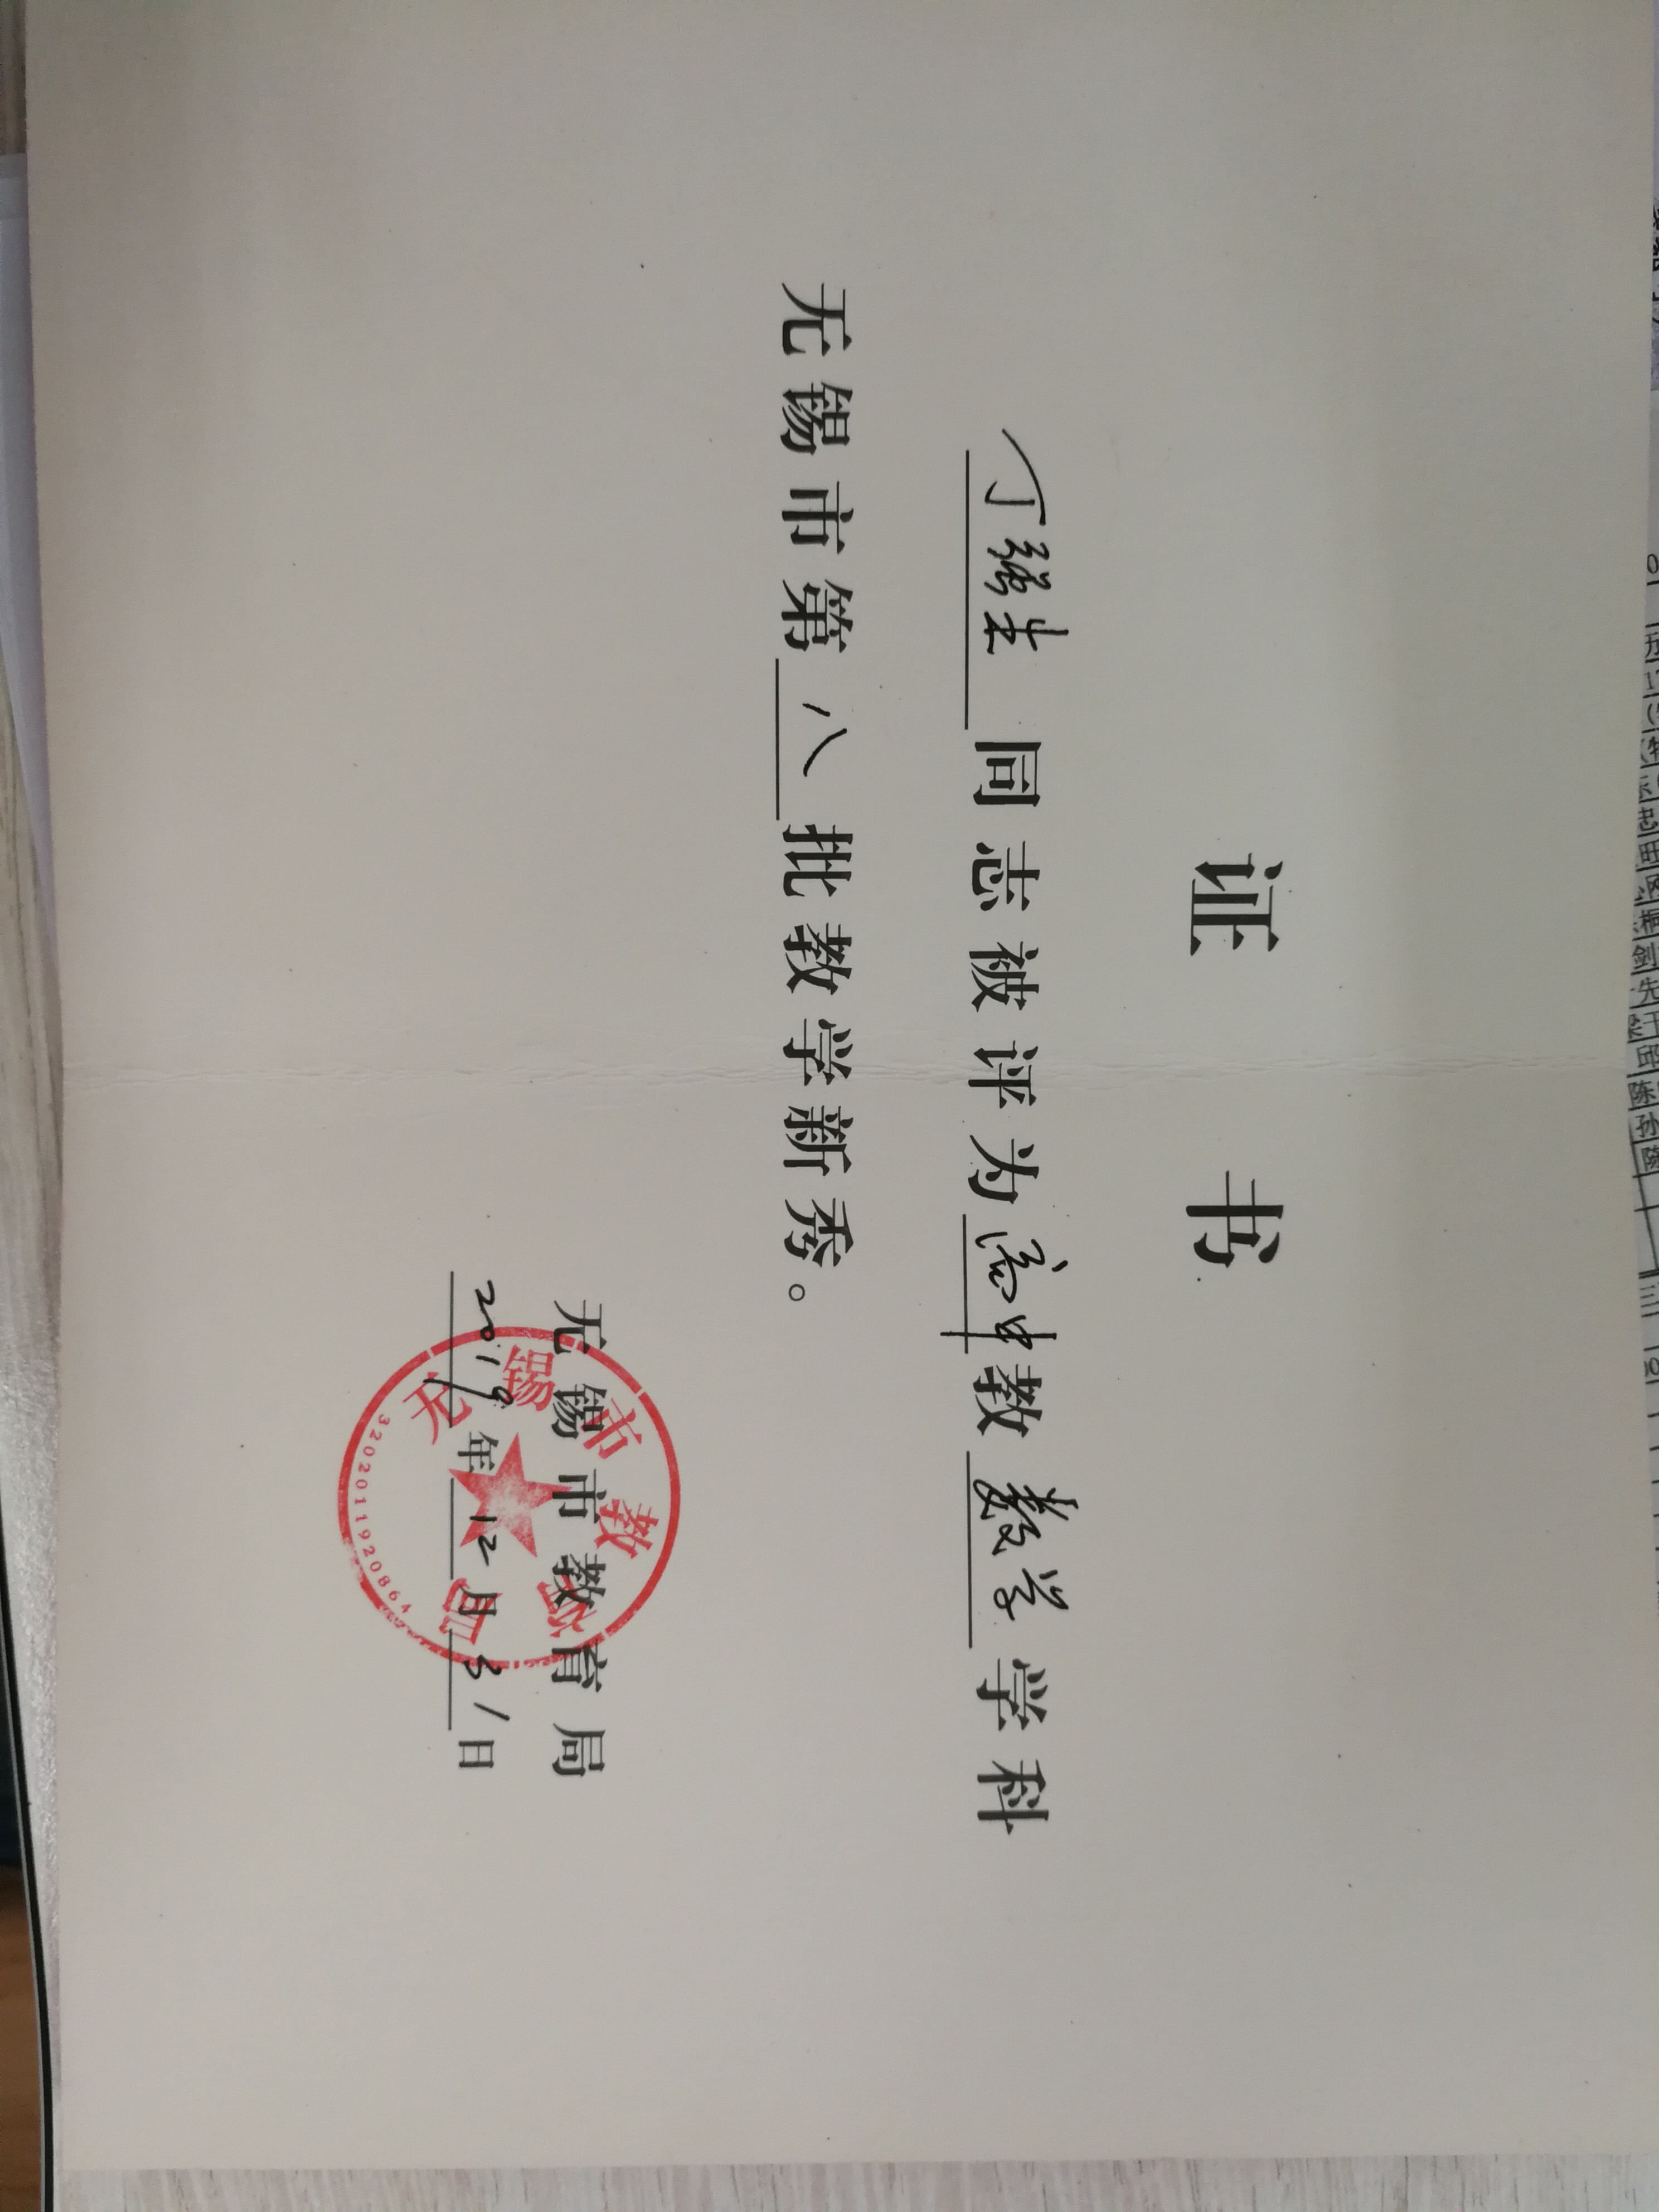 证 书
丁强生 同志被评为 高中 教 数学 学科
无锡市第 八 批教学新秀。
无锡市教育局
2019年12月31日
无锡市教育局
3202011920864